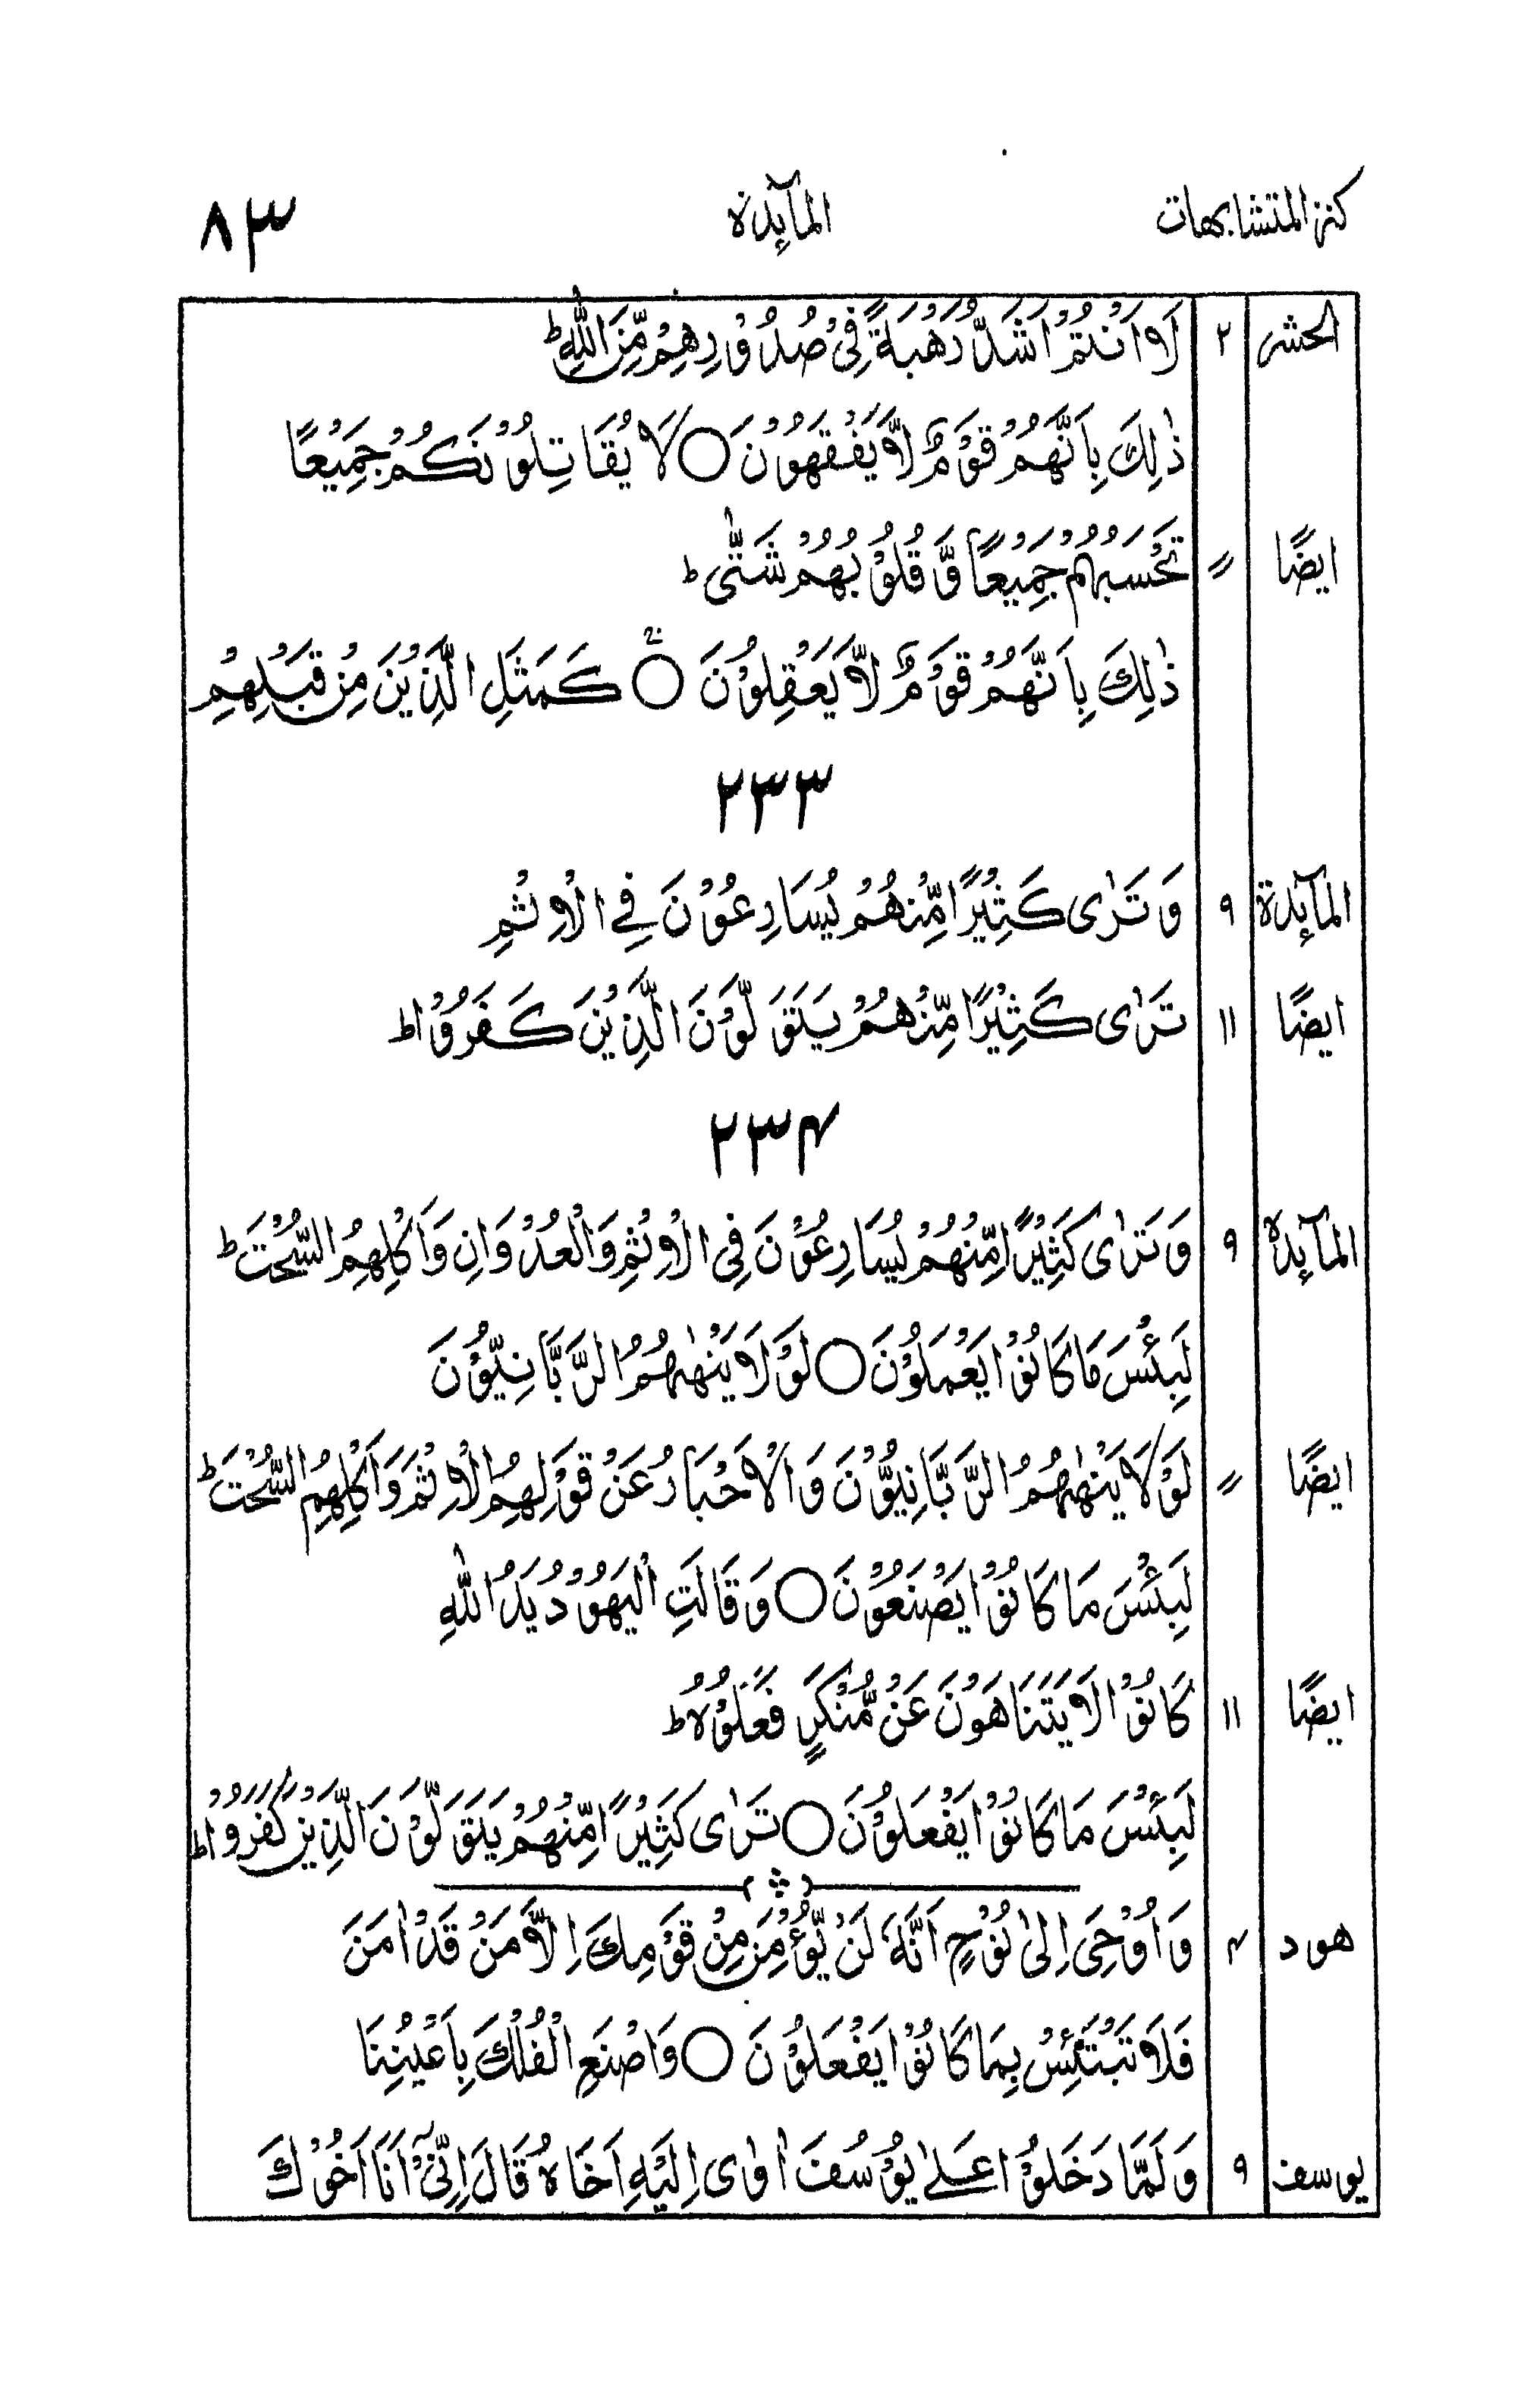 كنز المتشابهات المآئدة ۸۳
الحشر ۲ لَا۠اَنْتُمْ اَشَدُّ رَهْبَةً فِیْ صُدُوْرِهِمْ مِّنَ اللّٰهِ ؕ
ذٰلِكَ بِاَنَّهُمْ قَوْمٌ لَّا یَفْقَهُوْنَ ○ لَا یُقَاتِلُوْنَكُمْ جَمِیْعًا
ایضًا ״ تَحْسَبُهُمْ جَمِیْعًا وَّ قُلُوْبُهُمْ شَتّٰی ؕ
ذٰلِكَ بِاَنَّهُمْ قَوْمٌ لَّا یَعْقِلُوْنَ ○ كَمَثَلِ الَّذِیْنَ مِنْ قَبْلِهِمْ
۲۳۳
المآئدة ۹ وَ تَرٰی كَثِیْرًا مِّنْهُمْ یُسَارِعُوْنَ فِی الْاِثْمِ
ایضًا ۱۱ تَرٰی كَثِیْرًا مِّنْهُمْ یَتَوَلَّوْنَ الَّذِیْنَ كَفَرُوْا ؕ
۲۳۴
المآئدة ۹ وَ تَرٰی كَثِیْرًا مِّنْهُمْ یُسَارِعُوْنَ فِی الْاِثْمِ وَ الْعُدْوَانِ وَ اَكْلِهِمُ السُّحْتَ ؕ
لَبِئْسَ مَا كَانُوْا یَعْمَلُوْنَ ○ لَوْ لَا یَنْهٰىهُمُ الرَّبّٰنِیُّوْنَ
ایضًا ״ لَوْ لَا یَنْهٰىهُمُ الرَّبَّانِیُّوْنَ وَ الْاَحْبَارُ عَنْ قَوْلِهِمُ الْاِثْمَ وَ اَكْلِهِمُ السُّحْتَ ؕ
لَبِئْسَ مَا كَانُوْا یَصْنَعُوْنَ ○ وَ قَالَتِ الْیَهُوْدُ یَدُ اللّٰهِ
ایضًا ۱۱ كَانُوْا لَا یَتَنَاهَوْنَ عَنْ مُّنْكَرٍ فَعَلُوْهُ ؕ
لَبِئْسَ مَا كَانُوْا یَفْعَلُوْنَ ○ تَرٰی كَثِیْرًا مِّنْهُمْ یَتَوَلَّوْنَ الَّذِیْنَ كَفَرُوْا ؕ
هود ۴ وَ اُوْحِیَ اِلٰی نُوْحٍ اَنَّهٗ لَنْ یُّؤْمِنَ مِنْ قَوْمِكَ اِلَّا مَنْ قَدْ اٰمَنَ
فَلَا تَبْتَئِسْ بِمَا كَانُوْا یَفْعَلُوْنَ ○ وَ اصْنَعِ الْفُلْكَ بِاَعْیُنِنَا
یوسف ۹ وَ لَمَّا دَخَلُوْا عَلٰی یُوْسُفَ اٰوٰی اِلَیْهِ اَخَاهُ قَالَ اِنِّیْۤ اَنَا اَخُوْكَ